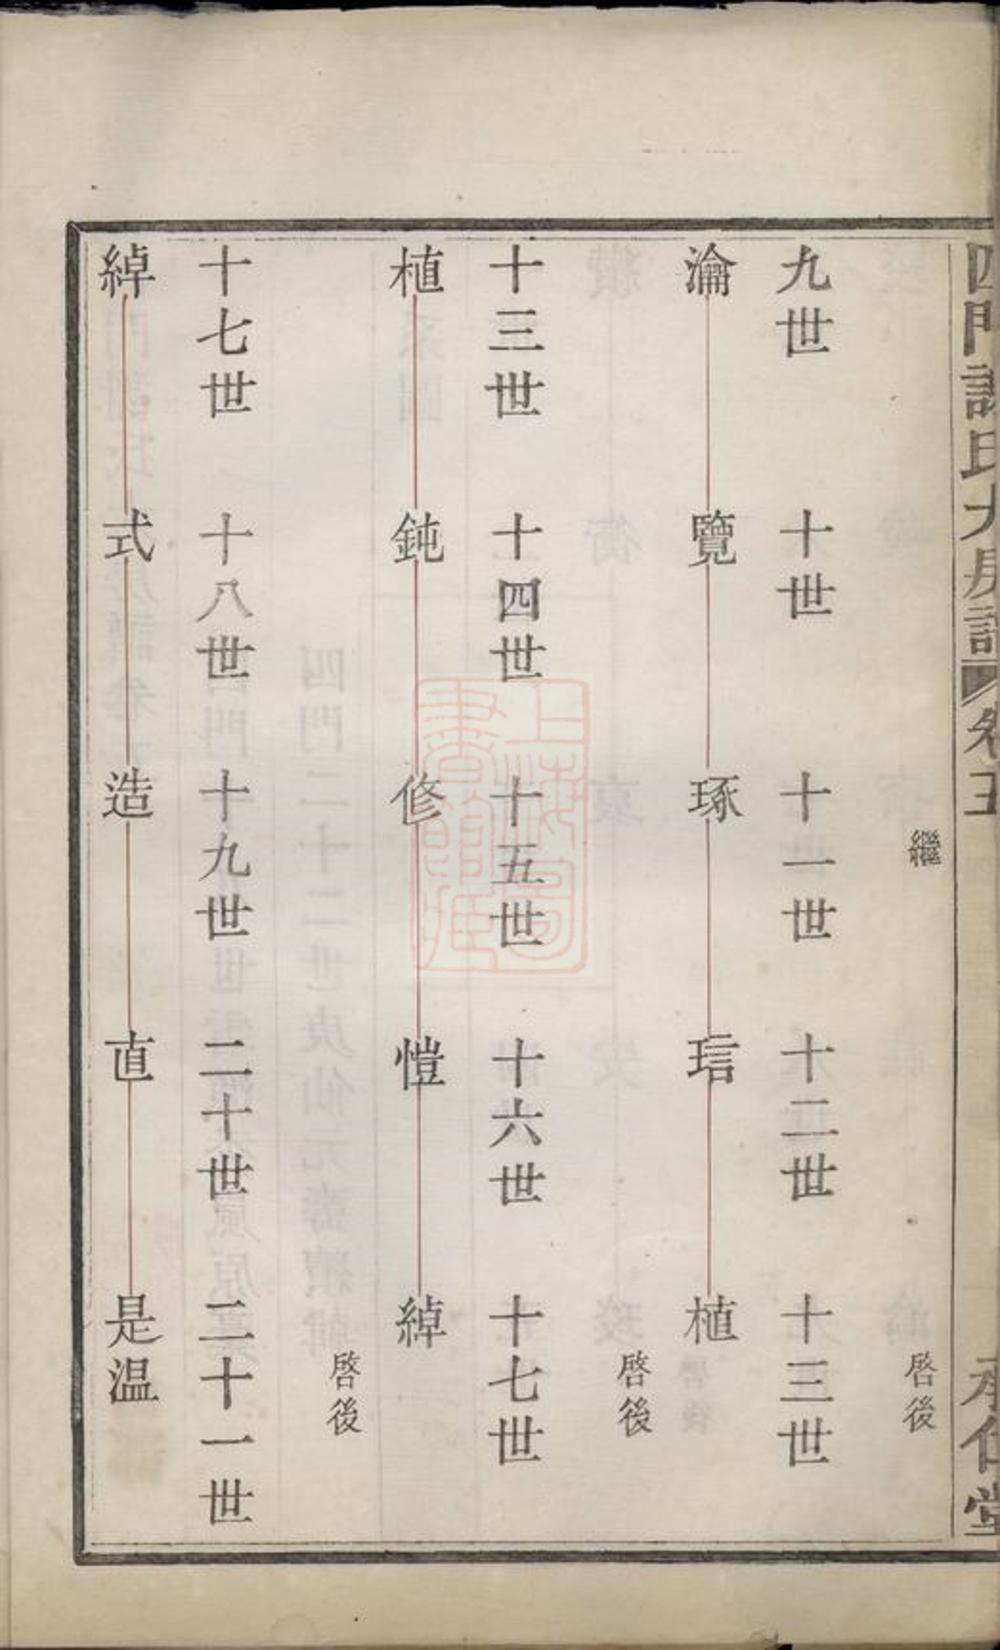 四門謝氏大房譜 卷五 承仁堂
繼 啓後
九世 十世 十一世 十二世 十三世
瀹 覽 琢 琂 植
啓後
十三世 十四世 十五世 十六世 十七世
植 鈍 修 愷 綽
啓後
十七世 十八世 十九世 二十世 二十一世
綽 式 造 直 是温
上海圖書館藏